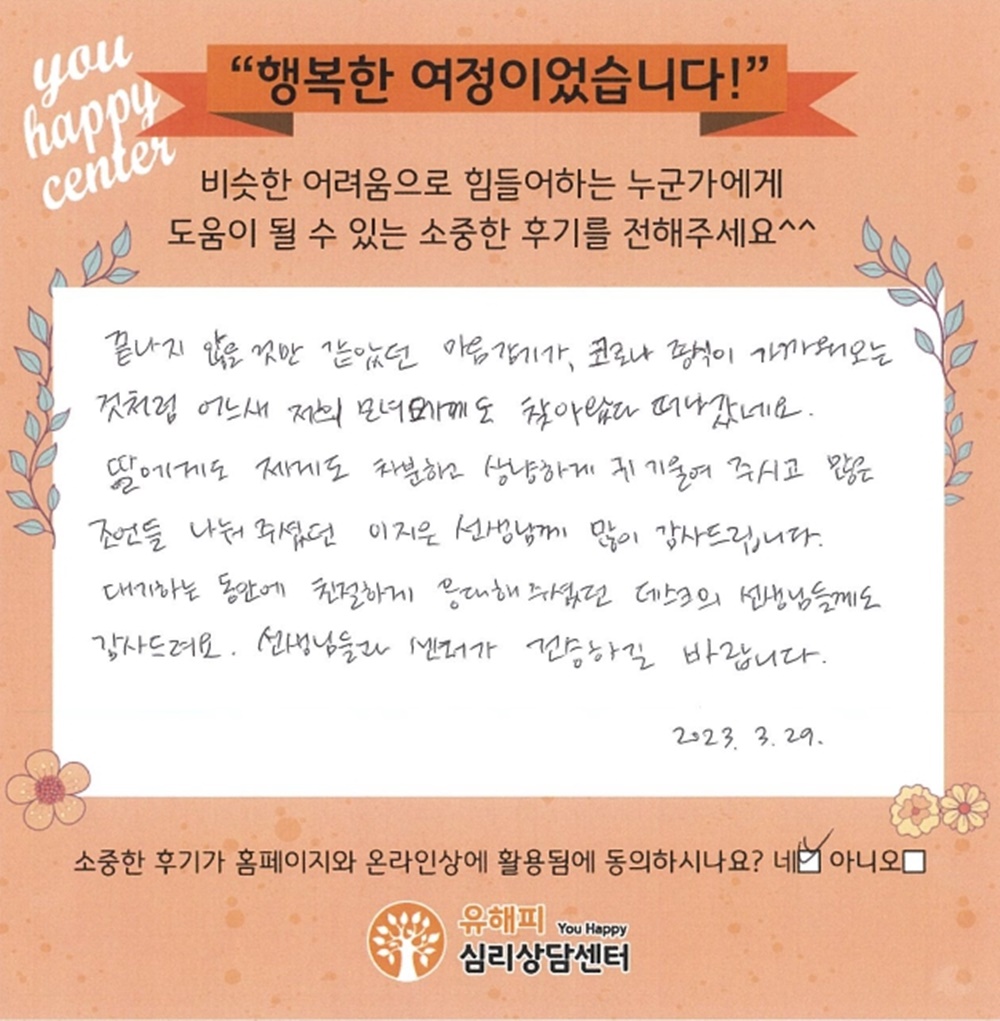 you
happy
center
“행복한 여정이었습니다!”
비슷한 어려움으로 힘들어하는 누군가에게
도움이 될 수 있는 소중한 후기를 전해주세요^^
끝나지 않을 것만 같았던 마음감기가, 코로나 종식이 가까워오는
것처럼 어느새 저희 모녀에게도 찾아왔다 떠나갔네요.
딸에게도 제게도 차분하고 상냥하게 귀 기울여 주시고 많은
조언들 나눠 주셨던 이지은 선생님께 많이 감사드립니다.
대기하는 동안에 친절하게 응대해주셨던 데스크의 선생님들께도
감사드려요. 선생님들과 센터가 건승하길 바랍니다.
2023. 3. 29.
소중한 후기가 홈페이지와 온라인상에 활용됨에 동의하시나요? 네 아니오
유해피 You Happy
심리상담센터